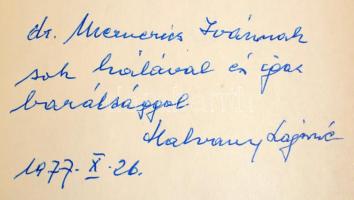 dr. Mernerics Ivánnak
sok hálával és igaz
barátsággal
Hatvany Lajosné
1977. X. 26.